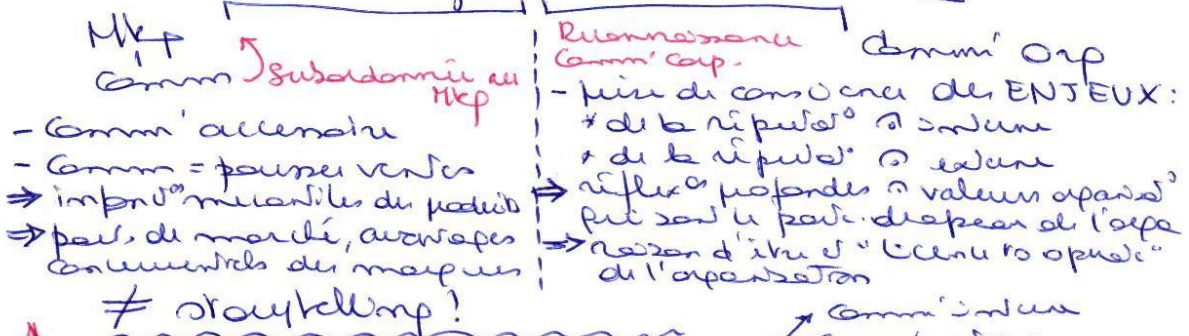 Mkg
Comm
subordonnée au
Mkg
- Comm' accessoire
- Comm = pousser ventes
⇒ informat° mercantiles des produits
⇒ parts de marché, avantages
concurrentiels des marques
≠ storytelling !
Reconnaissance
Comm' corp.
Comm' Orp
- prise de conscience des ENJEUX :
* de la réputat° interne
* de la réputat° externe
⇒ réflex°s profondes valeurs organisat°
qui sont le porte-drapeau de l'orga
⇒ raison d'être et "licence to operate"
de l'organisation
↗ comm' interne